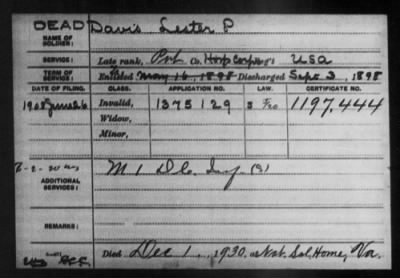 DEAD Davis Lester P
NAME OF SOLDIER:
SERVICE: Late rank, Pvt Co. Hosp Corps Reg't USA
TERM OF SERVICE: Enlisted May 16, 1898 Discharged Sept 3, 1898
DATE OF FILING. CLASS. APPLICATION NO. LAW. CERTIFICATE NO.
1908 June 26 Invalid, 1375129 1197.444
Widow,
Minor,
ADDITIONAL SERVICES: M 1 D.C. Inf.
REMARKS:
Died Dec 1, 1930, at Nat. Sol. Home, Va.